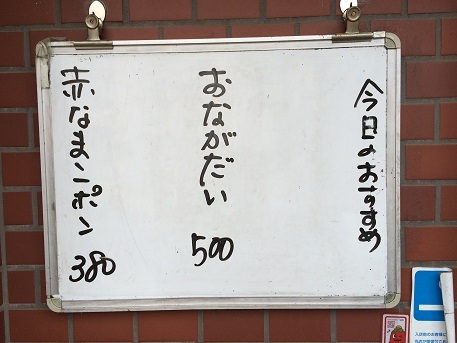 今日のおすすめ
おながだい
500
赤なまこポン
380